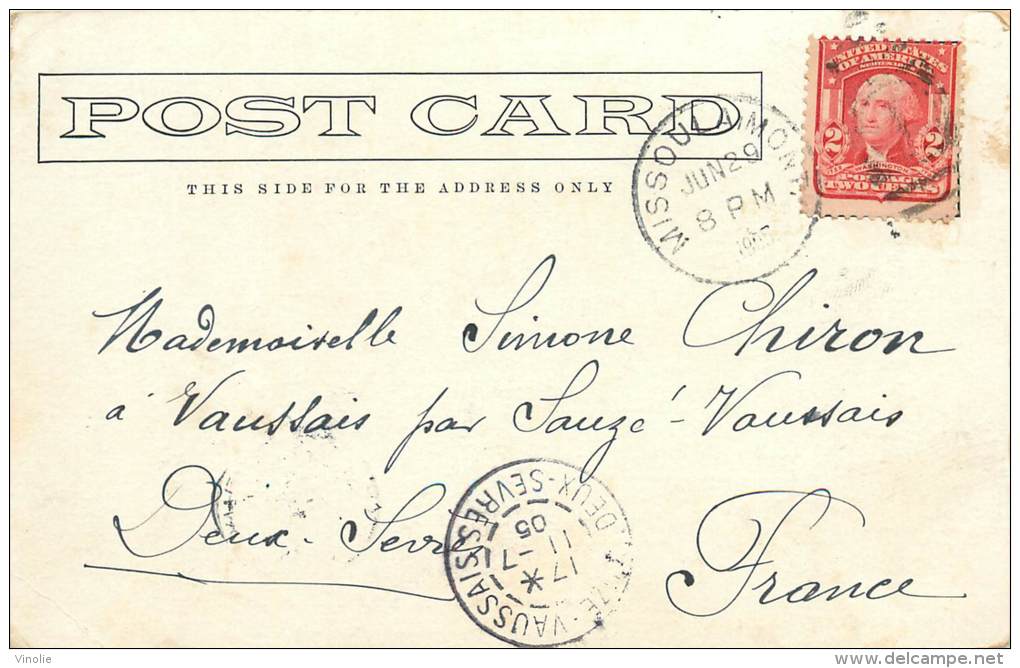 POST CARD
THIS SIDE FOR THE ADDRESS ONLY
UNITED STATES
OF AMERICA
2 WASHINGTON 2
TWO CENTS
MISSOULA, MONT.
JUN 29
8 PM
1905
Mademoiselle Simone Chiron
à Vaussais par Sauzé-Vaussais
Deux-Sevres
France
SAUZÉ-VAUSSAIS DEUX-SEVRES
17 *
11 -7
05
Vinolie
delcampe.net